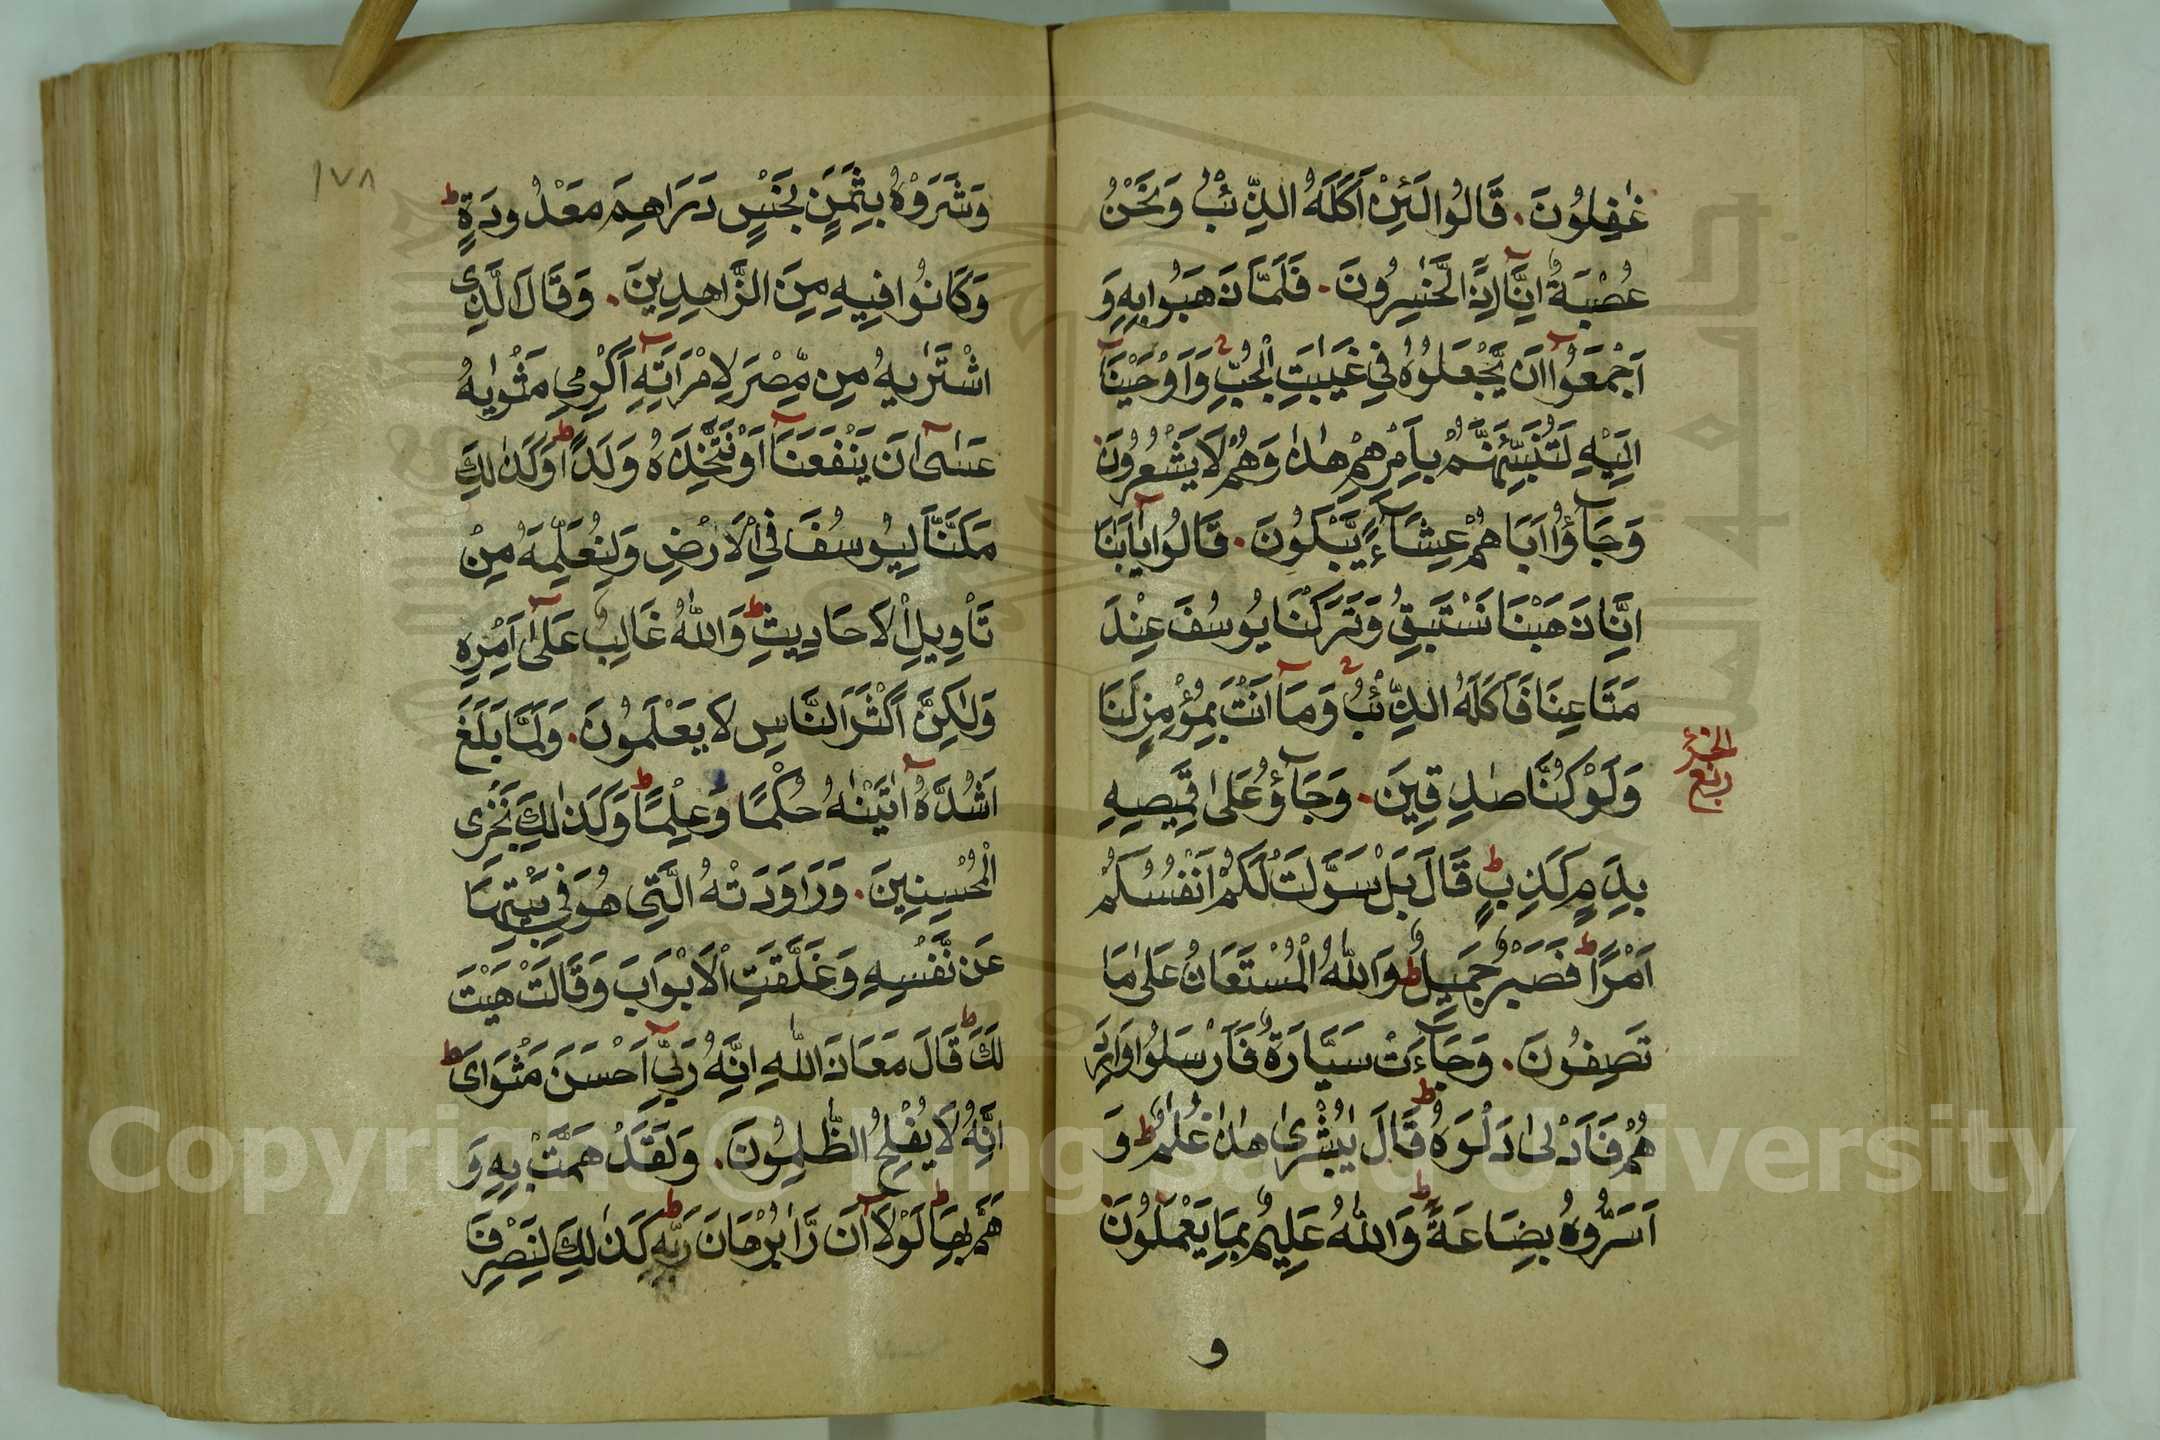 غٰفِلُونَ. قَالُوا لَئِنْ اَكَلَهُ الذِّئْبُ وَنَحْنُ
عُصْبَةٌ اِنَّآ اِذًا لَّخٰسِرُونَ. فَلَمَّا ذَهَبُوا بِهٖ وَ
اَجْمَعُوٓا اَنْ يَّجْعَلُوهُ فِي غَيٰبَتِ الْجُبِّ وَاَوْحَيْنَآ
اِلَيْهِ لَتُنَبِّئَنَّهُمْ بِاَمْرِهِمْ هٰذَا وَهُمْ لَا يَشْعُرُونَ
وَجَآؤُا اَبَاهُمْ عِشَآءً يَّبْكُونَ. قَالُوا يٰٓاَبَانَا
اِنَّا ذَهَبْنَا نَسْتَبِقُ وَتَرَكْنَا يُوسُفَ عِنْدَ
مَتَاعِنَا فَاَكَلَهُ الذِّئْبُ وَمَآ اَنْتَ بِمُؤْمِنٍ لَّنَا
وَلَوْ كُنَّا صٰدِقِينَ. وَجَآؤُ عَلٰى قَمِيصِهٖ
الجزء
ربع
بِدَمٍ كَذِبٍ ط قَالَ بَلْ سَوَّلَتْ لَكُمْ اَنْفُسُكُمْ
اَمْرًا ط فَصَبْرٌ جَمِيلٌ ط وَاللّٰهُ الْمُسْتَعَانُ عَلٰى مَا
تَصِفُونَ. وَجَآءَتْ سَيَّارَةٌ فَاَرْسَلُوا وَارِدَ
هُمْ فَاَدْلٰى دَلْوَهُ ط قَالَ يٰبُشْرٰى هٰذَا غُلٰمٌ ط وَ
اَسَرُّوهُ بِضَاعَةً ط وَاللّٰهُ عَلِيمٌ بِمَا يَعْمَلُونَ
و
١٧٨
وَشَرَوْهُ بِثَمَنٍ بَخْسٍ دَرَاهِمَ مَعْدُودَةٍ ط
وَكَانُوا فِيهِ مِنَ الزَّاهِدِينَ. وَقَالَ الَّذِى
اشْتَرٰيهُ مِنْ مِّصْرَ لِامْرَاَتِهٖٓ اَكْرِمِى مَثْوٰيهُ
عَسٰىٓ اَنْ يَنْفَعَنَآ اَوْ نَتَّخِذَهُ وَلَدًا ط وَكَذٰلِكَ
مَكَّنَّا لِيُوسُفَ فِي الْاَرْضِ وَلِنُعَلِّمَهُ مِنْ
تَأْوِيلِ الْاَحَادِيثِ ط وَاللّٰهُ غَالِبٌ عَلٰىٓ اَمْرِهٖ
وَلٰكِنَّ اَكْثَرَ النَّاسِ لَا يَعْلَمُونَ. وَلَمَّا بَلَغَ
اَشُدَّهُٓ اٰتَيْنٰهُ حُكْمًا وَّعِلْمًا ط وَكَذٰلِكَ نَجْزِى
الْمُحْسِنِينَ. وَرَاوَدَتْهُ الَّتِى هُوَ فِي بَيْتِهَا
عَنْ نَّفْسِهٖ وَغَلَّقَتِ الْاَبْوَابَ وَقَالَتْ هَيْتَ
لَكَ ط قَالَ مَعَاذَ اللّٰهِ اِنَّهُ رَبِّىٓ اَحْسَنَ مَثْوَاىَ ط
اِنَّهُ لَا يُفْلِحُ الظّٰلِمُونَ. وَلَقَدْ هَمَّتْ بِهٖ وَ
هَمَّ بِهَا ط لَوْلَآ اَنْ رَّاٰ بُرْهَانَ رَبِّهٖ ط كَذٰلِكَ لِنَصْرِفَ
Copyright © King Saud University